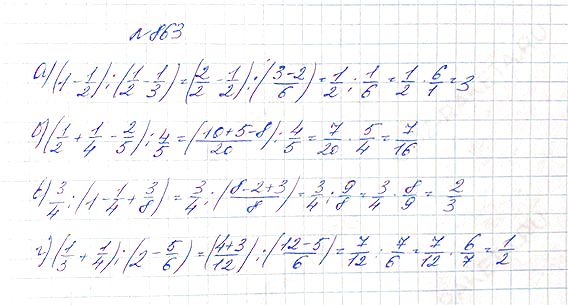 №863
а) (1 - 1/2) : (1/2 - 1/3) = (2/2 - 1/2) : (3-2/6) = 1/2 : 1/6 = 1/2 · 6/1 = 3
б) (1/2 + 1/4 - 2/5) : 4/5 = (10+5-8/20) : 4/5 = 7/20 · 5/4 = 7/16
в) 3/4 : (1 - 1/4 + 3/8) = 3/4 : (8-2+3/8) = 3/4 : 9/8 = 3/4 · 8/9 = 2/3
г) (1/3 + 1/4) : (2 - 5/6) = (4+3/12) : (12-5/6) = 7/12 : 7/6 = 7/12 · 6/7 = 1/2